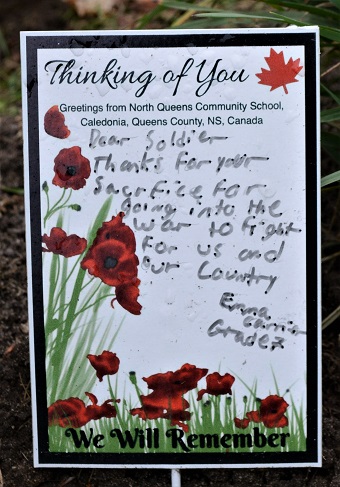 Thinking of You
Greetings from North Queens Community School,
Caledonia, Queens County, NS, Canada
Dear Soldier
Thanks for your
Sacrifice for
going into the
war to fight
for us and
our Country
Emma
Grade 2
We Will Remember